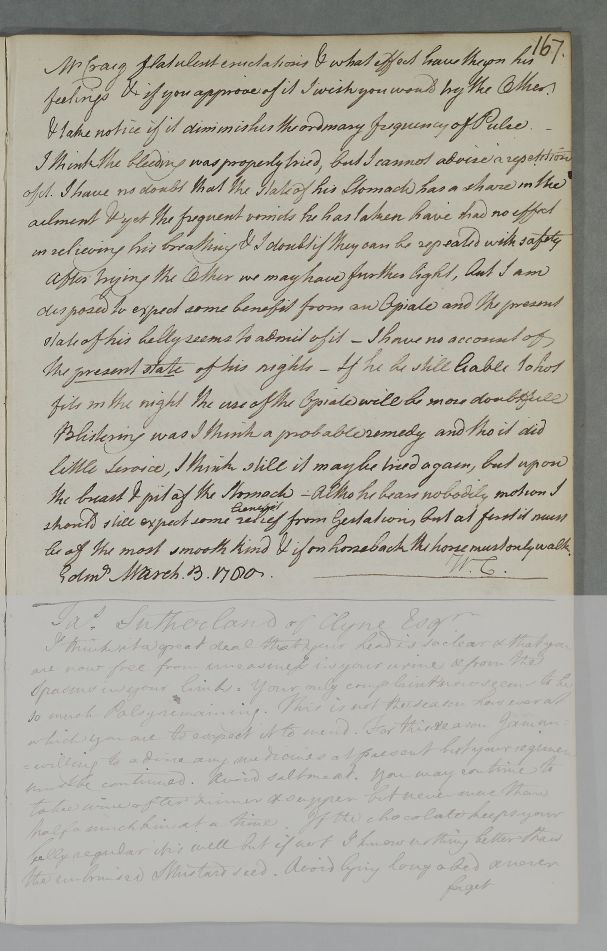 167.
Mr Craig flatulent eructations & what effect have they on his
feelings & if you approve of it I wish you would try the Ether
& take notice if it diminishes the ordinary frequency of Pulse –
I think the bleeding was properly tried, but I cannot advise a repetition
of it. I have no doubt that the state of his Stomach has a share in the
ailment & yet the frequent vomits he has taken have had no effect
in relieving his breathing & I doubt if they can be repeated with safety
After trying the Ether we may have further light, but I am
disposed to expect some benefit from an Opiate and the present
state of his belly seems to admit of it – I have no account of
the present state of his nights – If he be still liable to hot
fits in the night the use of the Opiate will be more doubtfull
Blistering was I think a probable remedy and tho it did
little service, I think still it may be tried again, but upon
the breast & pit of the Stomach – Altho he bears no bodily motion I
should still expect some relief from Gestation, but at first it must
be of the most smooth kind & if on horseback the horse must only walk.
Edinr March. 13. 1780. W. C.
Jas Sutherland of Clyne Esqr
I think it a great deal that your head is so clear & that you
are now free from uneasiness in your urine & from the
spasms in your limbs. Your only complaint now seems to be
so much Palsy remaining. This is not the season however at
which you are to expect it to mend. For this reason I am un-
=willing to advise any medicines at present but your regimen
must be continued. Avoid salt meat. You may continue to
take wine after dinner & supper but never more than
half a mutchkin at a time. If the chocolate keeps your
belly regular it is well but if not I know nothing better than
the unbruised Mustard seed. Avoid lying long a bed & never
forget